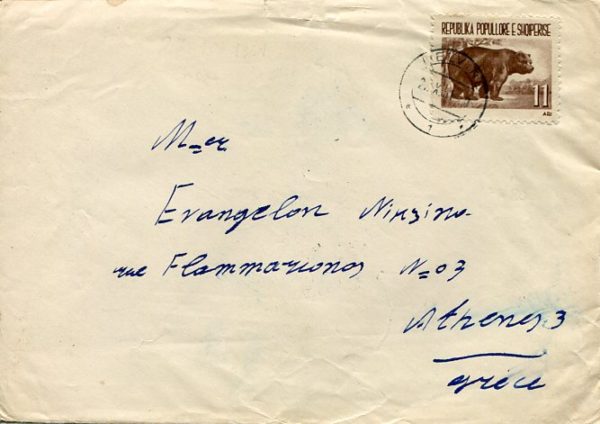 REPUBLIKA POPULLORE E SHQIPERISE
11
M=er
Evangelon
rue Flammarionos N=03
Athenes 3
grèce